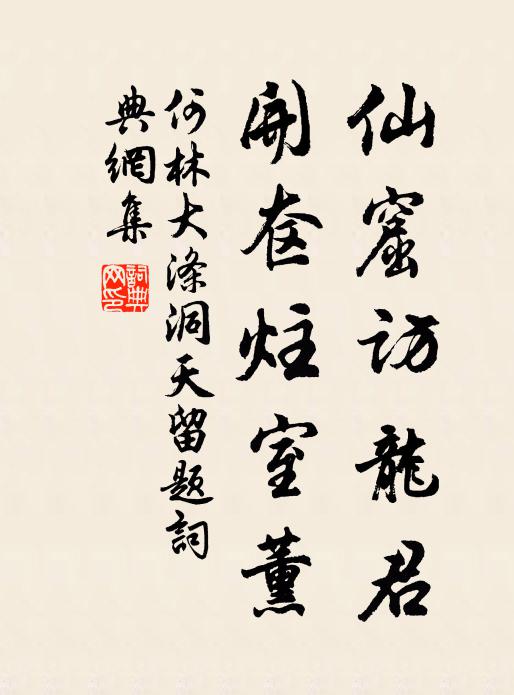 仙窟訪龍君
開奁炷室薰
何林大涤洞天留题詞
典網集
詞典
网印